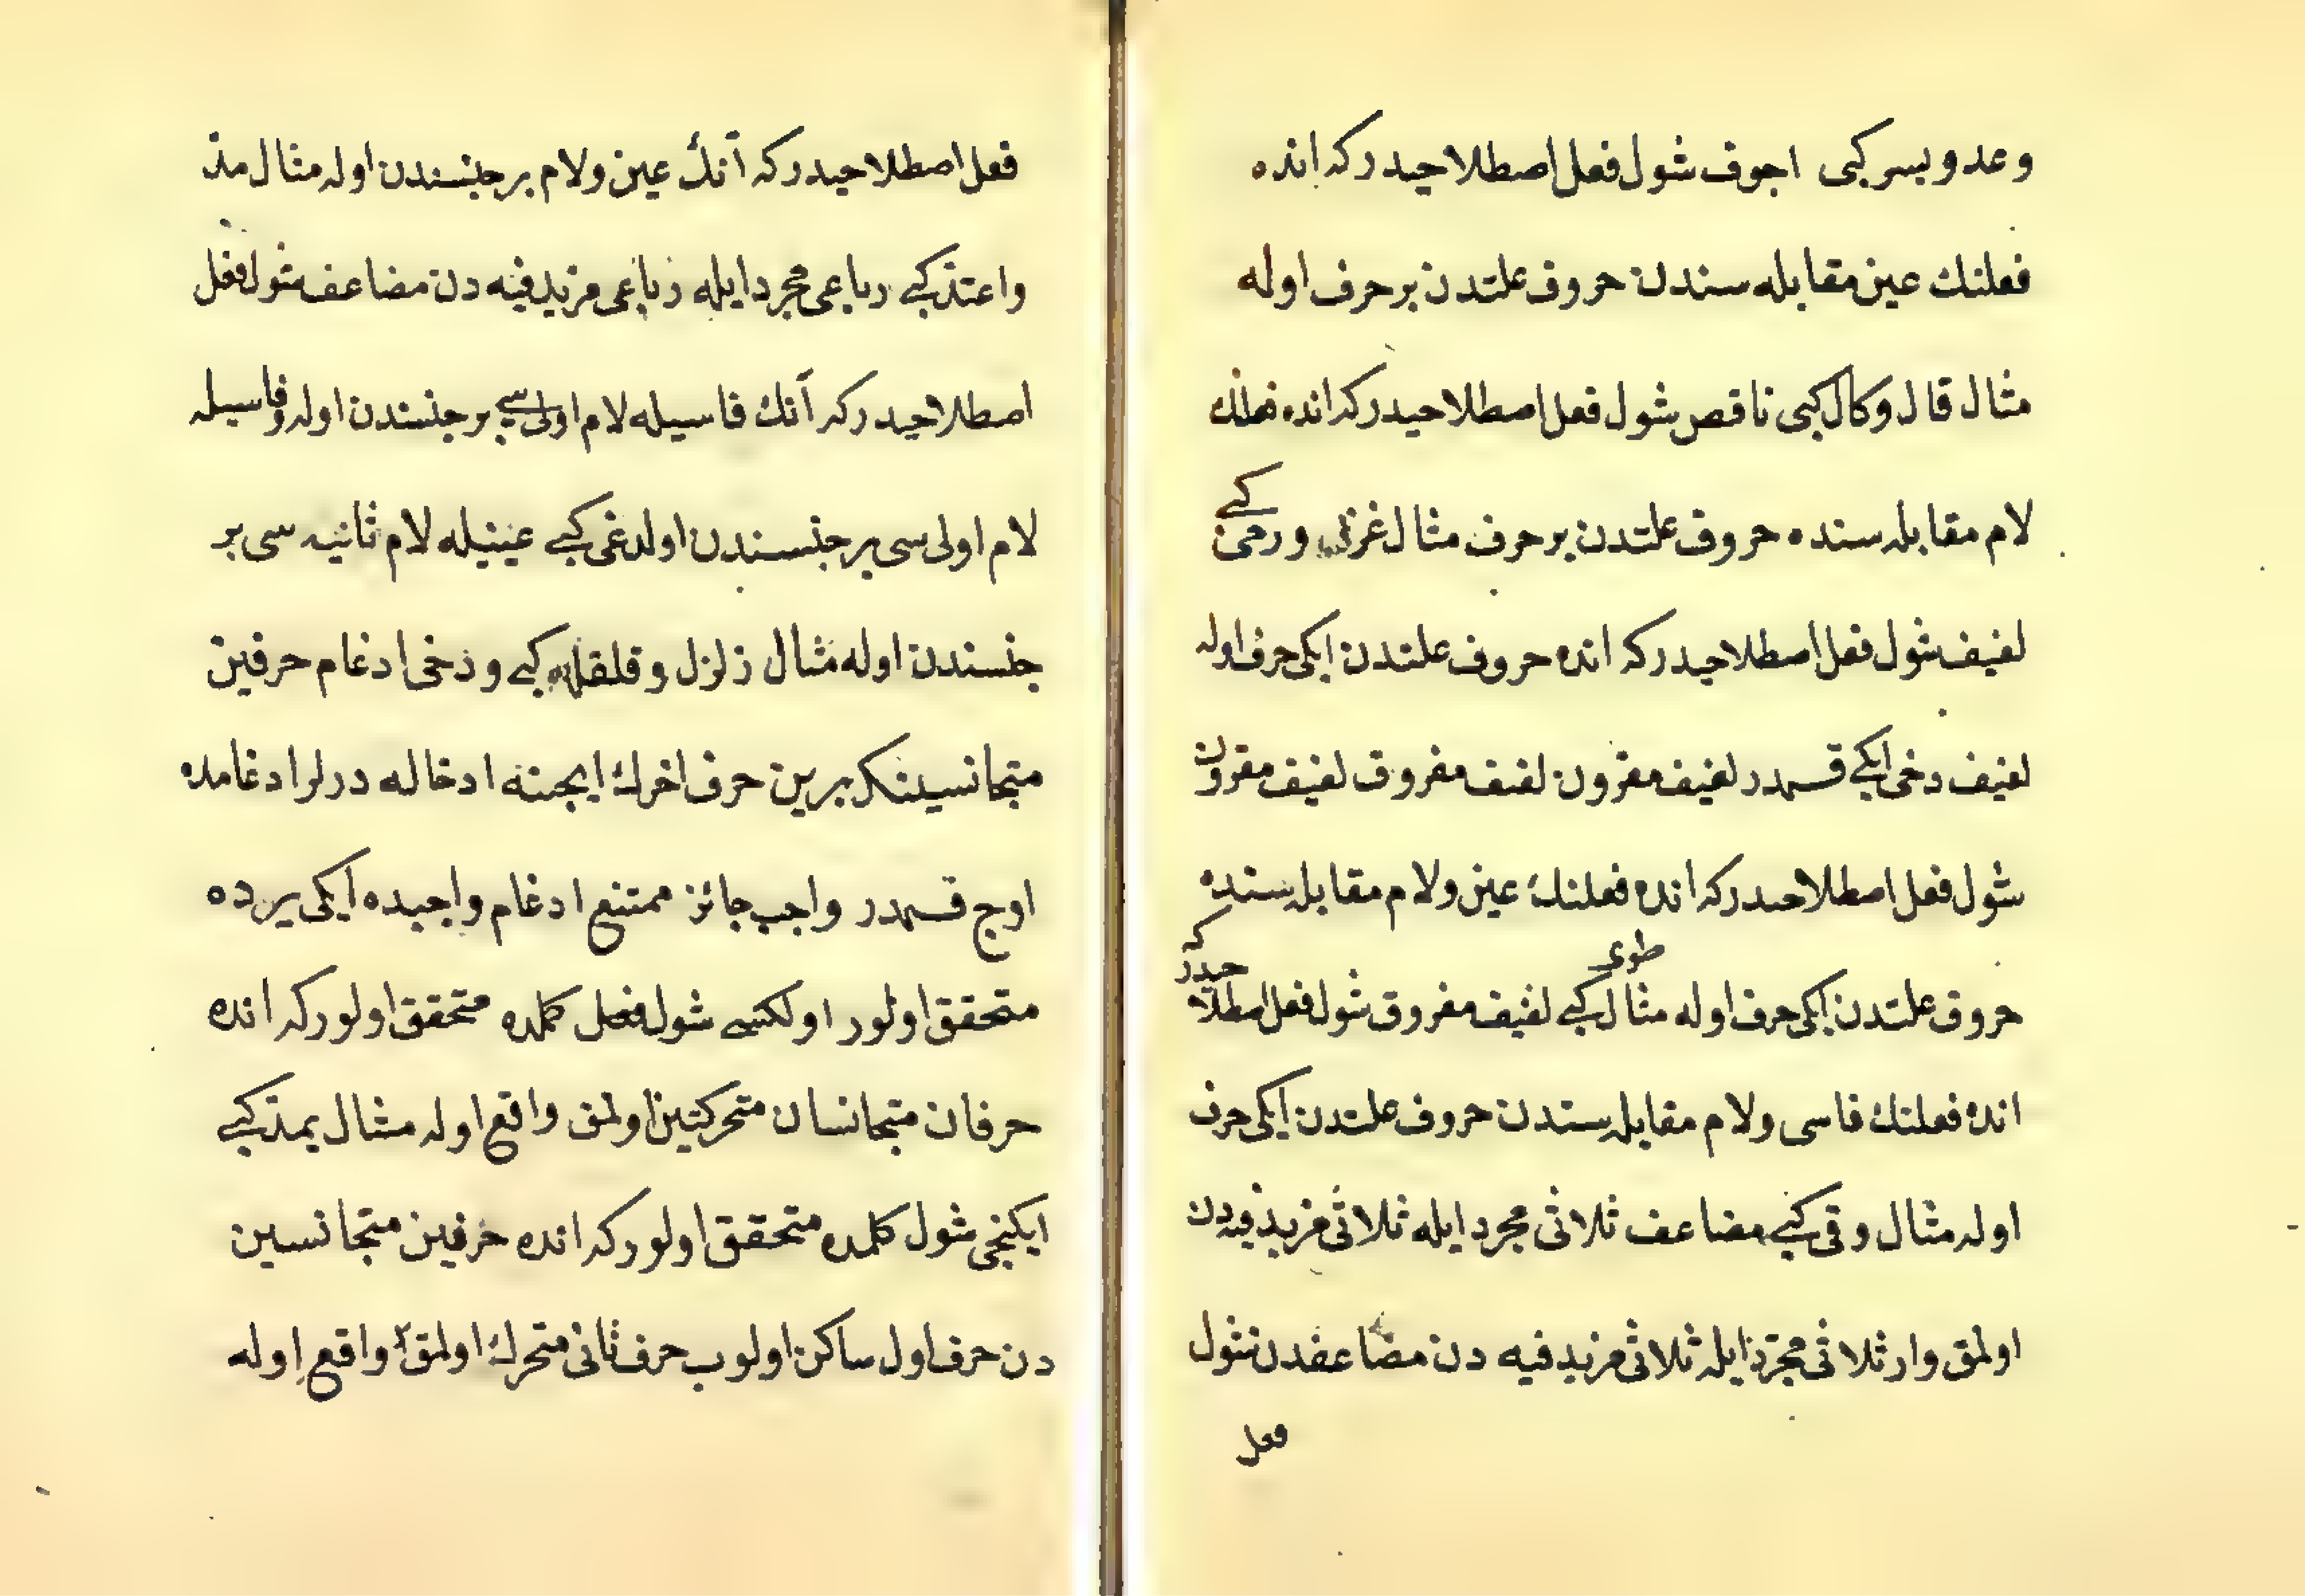 وعد ويسر كبى اجوف شول فعل اصطلاحيدركه انده
فعلنك عين مقابله سندن حروف علتدن بر حرف اوله
مثال قال وكال كبى ناقص شول فعل اصطلاحيدركه انده فعلنك
لام مقابله سنده حروف علتدن بر حرف مثال غزى ورمى كبى
لفيف شول فعل اصطلاحيدركه انده حروف علتدن ايكى حرف اوله
لفيف دخى ايكى قسمدر لفيف مقرون لفيف مفروق لفيف مقرون
شول فعل اصطلاحيدركه انده فعلنك عين ولام مقابله سنده
حروف علتدن ايكى حرف اوله مثال طوى كبى لفيف مفروق شول فعل اصطلاحيدركه
انده فعلنك فاسى ولام مقابله سندن حروف علتدن ايكى حرف
اوله مثال وقى كبى مضاعف ثلاثى مجرد ايله ثلاثى مزيد فيه دن
اولمق وار ثلاثى مجرد ايله ثلاثى مزيد فيه دن مضاعفدن شول
فعل
فعل اصطلاحيدركه آنك عين ولام بر جنسندن اوله مثال مد
واعتد كبى رباعى مجرد ايله رباعى مزيد فيه دن مضاعف شول فعل
اصطلاحيدركه آنك فاسيله لام اولى سى بر جنسندن اوله وفاسيله
لام اولى سى بر جنسندن اولدغى كبى عينيله لام ثانيه سى بر
جنسندن اوله مثال زلزل وقلقله كبى ودخى ادغام حرفين
متجانسينك برين حرف اخرك ايچنه ادخاله درلر ادغامده
اوچ قسمدر واجب جائز ممتنع ادغام واجبده ايكى يرده
متحقق اولور اولكسى شول فعل كلمده متحقق اولوركه انده
حرفان متجانسان متحركتين اولمق واقع اوله مثال يمد كبى
ايكنجى شول كلمده متحقق اولوركه انده حرفين متجانسين
دن حرف اول ساكن اولوب حرف ثانى متحرك اولمق واقع اوله